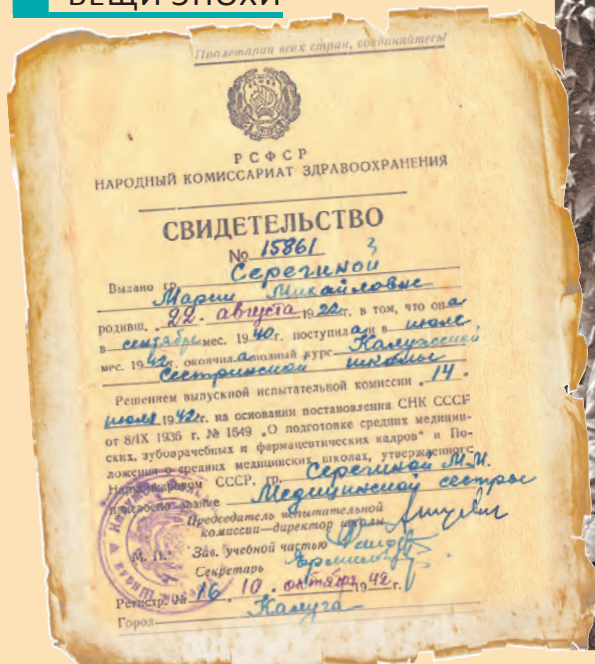 ВЕЩИ ЭПОХИ
Пролетарии всех стран, соединяйтесь!
РСФСР
НАРОДНЫЙ КОМИССАРИАТ ЗДРАВООХРАНЕНИЯ
СВИДЕТЕЛЬСТВО
№ 15861
Выдано гр. Серегиной
Марии Михайловне
родивш. „22. августа 1922г. в том, что она
в сентябре мес. 1940г. поступила и в июле
мес. 1942г. окончила полный курс Калужской
Сестринской школы
Решением выпускной испытательной комиссии „14.
июля 1942г. на основании постановления СНК СССР
от 8/IX 1936 г. № 1649 „О подготовке средних медицин-
ских, зубоврачебных и фармацевтических кадров" и По-
ложения о средних медицинских школах, утвержденного
Наркомздравом СССР, гр. Серегиной М.И.
присвоено звание Медицинской сестры
Председатель испытательной
комиссии—директор школы
М. П. Зав. учебной частью
Секретарь
Регистр. № 16 . 10 . октября 1942 г.
Город Калуга